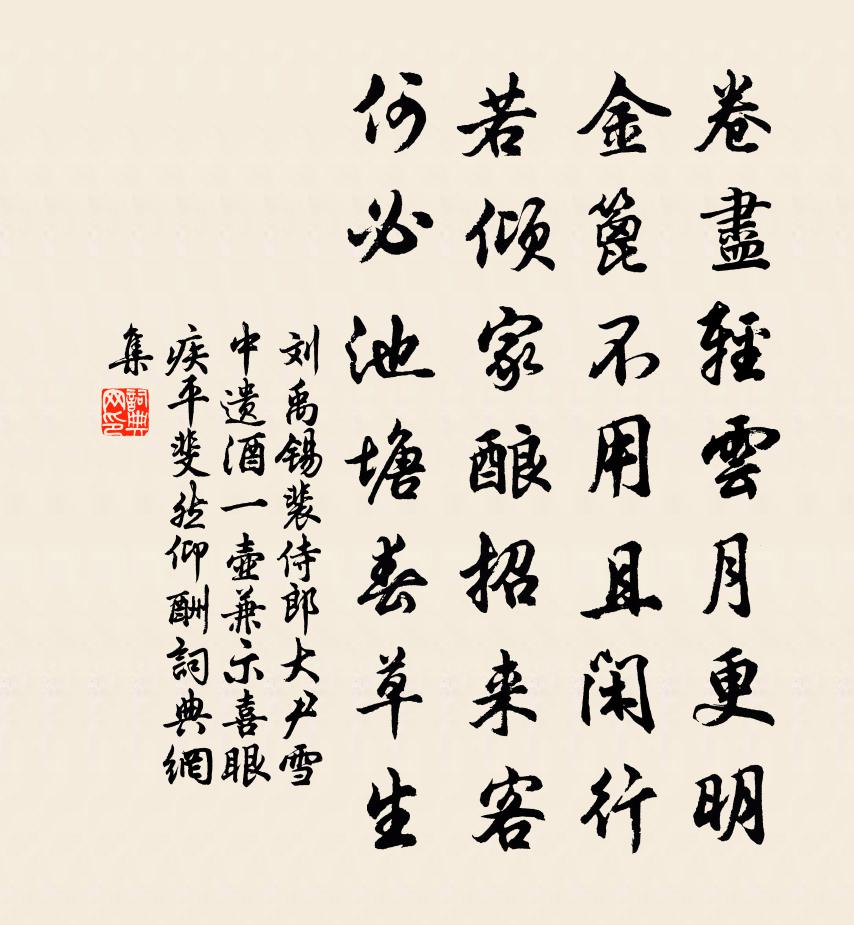 卷盡輕雲月更明
金篦不用且閑行
若傾家酿招来客
何必池塘春草生
刘禹锡裴侍郎大尹雪
中遗酒一壶兼示喜眼
疾平斐然仰酬詞典網
集
詞典网印